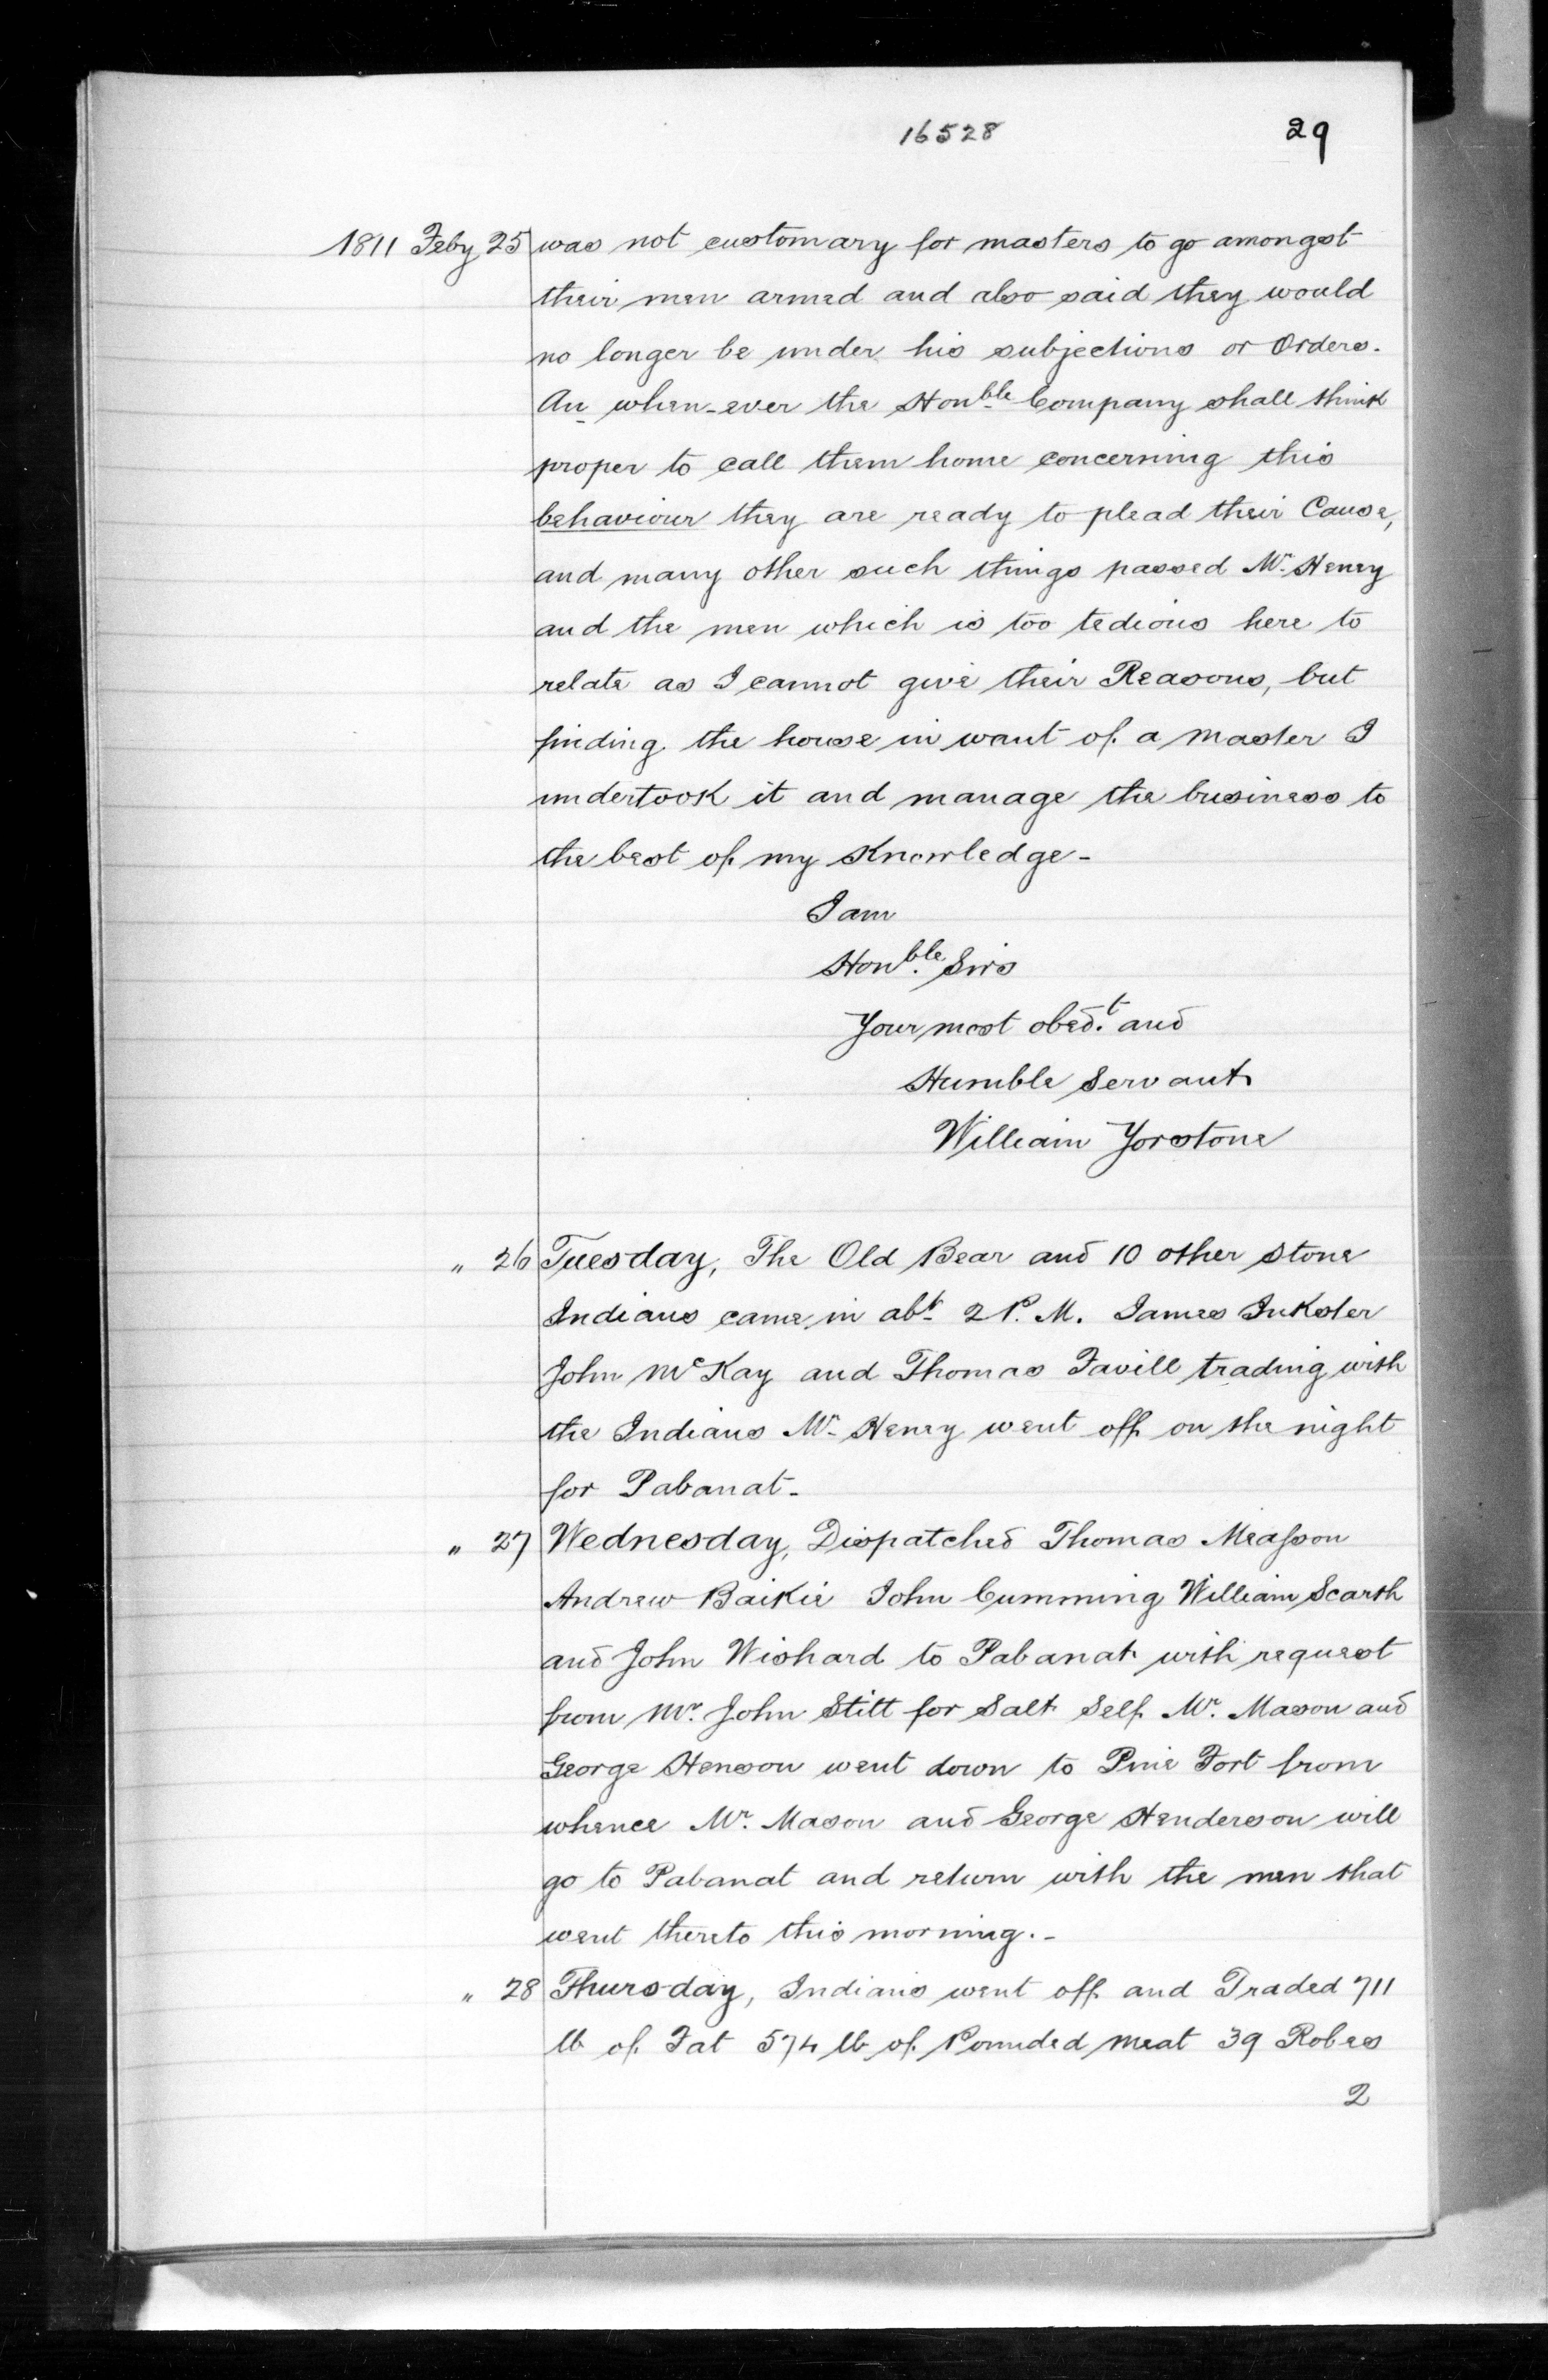 16528 29
1811 Feby 25 was not customary for masters to go amongst
their men armed and also said they would
no longer be under his subjections or Orders.
An when-ever the Honble Company shall think
proper to call them home concerning this
behaviour they are ready to plead their Cause,
and many other such things passed Mr. Heney
and the men which is too tedious here to
relate as I cannot give their Reasons, but
finding the house in want of a master I
undertook it and manage the business to
the best of my Knowledge-
I am
Honble. Sirs
Your most obedt. and
Humble Servant
William Yorstone
" 26 Tuesday, The Old Bear and 10 other Stone
Indians came in abt 2 P.M. James Inkster
John McKay and Thomas Favill trading with
the Indians Mr. Heney went off on the night
for Pabanat-
" 27 Wednesday, Dispatched Thomas Measson
Andrew Baikie John Cumming William Scarth
and John Wishard to Pabanat with request
from Mr. John Stitt for Salt Self Mr. Mason and
George Henson went down to Pine Fort from
whence Mr. Mason and George Henderson will
go to Pabanat and return with the men that
went thereto this morning.-
" 28 Thursday, Indians went off and Traded 711
lb of Fat 574 lb of Pounded meat 39 Robes
2